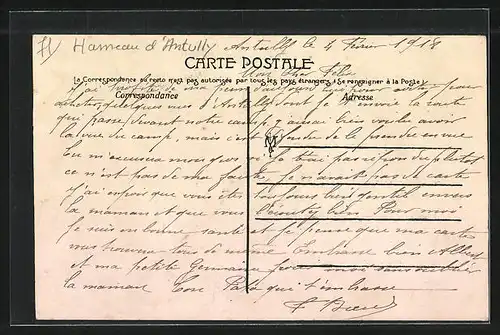 Hameau d'Antully Antully le 4 Février 1918
CARTE POSTALE
Mon cher
La Correspondance au recto n'est pas autorisée par tous les pays étrangers (Se renseigner à la Poste)
J'ai profité de ma
Correspondance Adresse
acheter quelques vues d'Antully dont je t'envoie la route
qui passe devant notre camp, j'aurais bien voulu avoir
la vue du camp, mais c'est défendu de le prendre en vue
Tu m'excusera mon si je t'ai pas répondu plutot
ce n'est pas de ma faute, je n'avait pas de carte
J'ai espoir que vous êtes toujours bien gentil envers
la maman et que vous bien Pour moi
je suis en bonne santé et je pense que ma carte
vous trouvera tous de même Embrasse bien Albert
et ma petite Germaine pour moi sans oublier
la maman Ton Papa qui t'embrasse